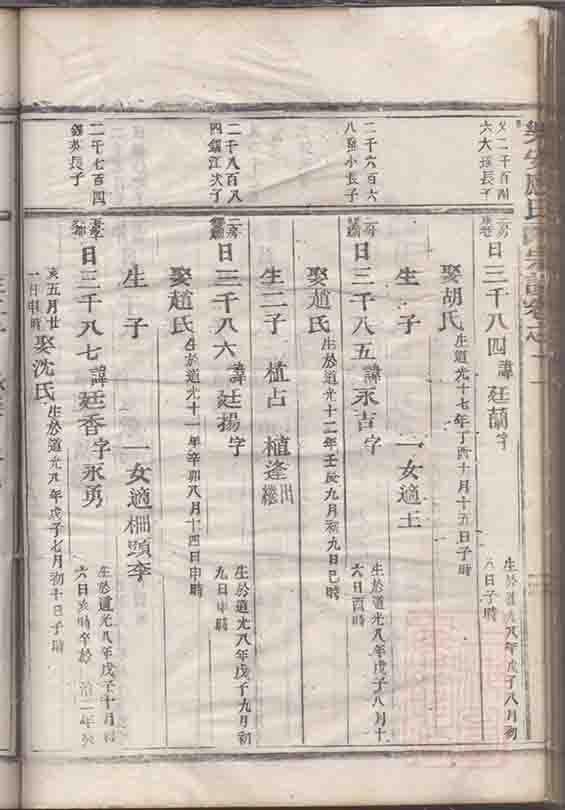 父二千百四
六大瑤長子
二房
日三千八四諱廷蘭字
生於道光八年戊子八月初
八日子時
娶胡氏生道光十七年丁酉十月十五日子時
生子 一女適王
二千六百六
八瑤小長子
二房
日三千八五諱永吉字
生於道光八年戊子八月十
六日酉時
娶趙氏生於道光十二年壬辰九月初九日巳時
生二子 植占 植逢
二千八百八
四錦江次子
二房
日三千八六諱廷揚字
生於道光八年戊子九月初
九日申時
娶趙氏生於道光十一年辛卯八月十四日申時
生子 一女適柵頭李
二千七百四
錦英長子
日三千八七諱廷香字永勇
生於道光八年戊子十月初
六日亥時卒於 治二年癸
亥五月廿
一日申時
娶沈氏生於道光八年戊子七月初十日子時